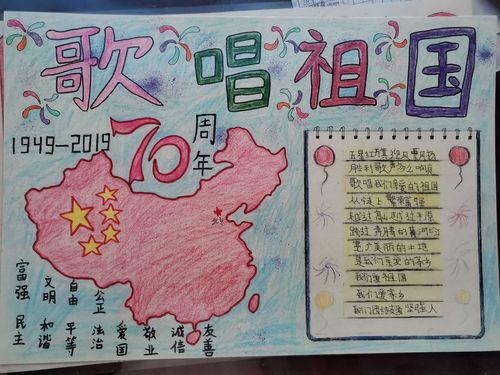 歌唱祖国
1949-2019
70周年
北京
富强 民主
文明 和谐
自由 平等
公正 法治
爱国
敬业
诚信
友善
五星红旗迎风飘扬
胜利歌声多么响亮
歌唱我们亲爱的祖国
从今走上繁荣富强
越过高山越过平原
跨过奔腾的黄河长江
宽广美丽的土地
是我们亲爱的家乡
我们爱祖国
我们爱家乡
我们团结友爱坚强